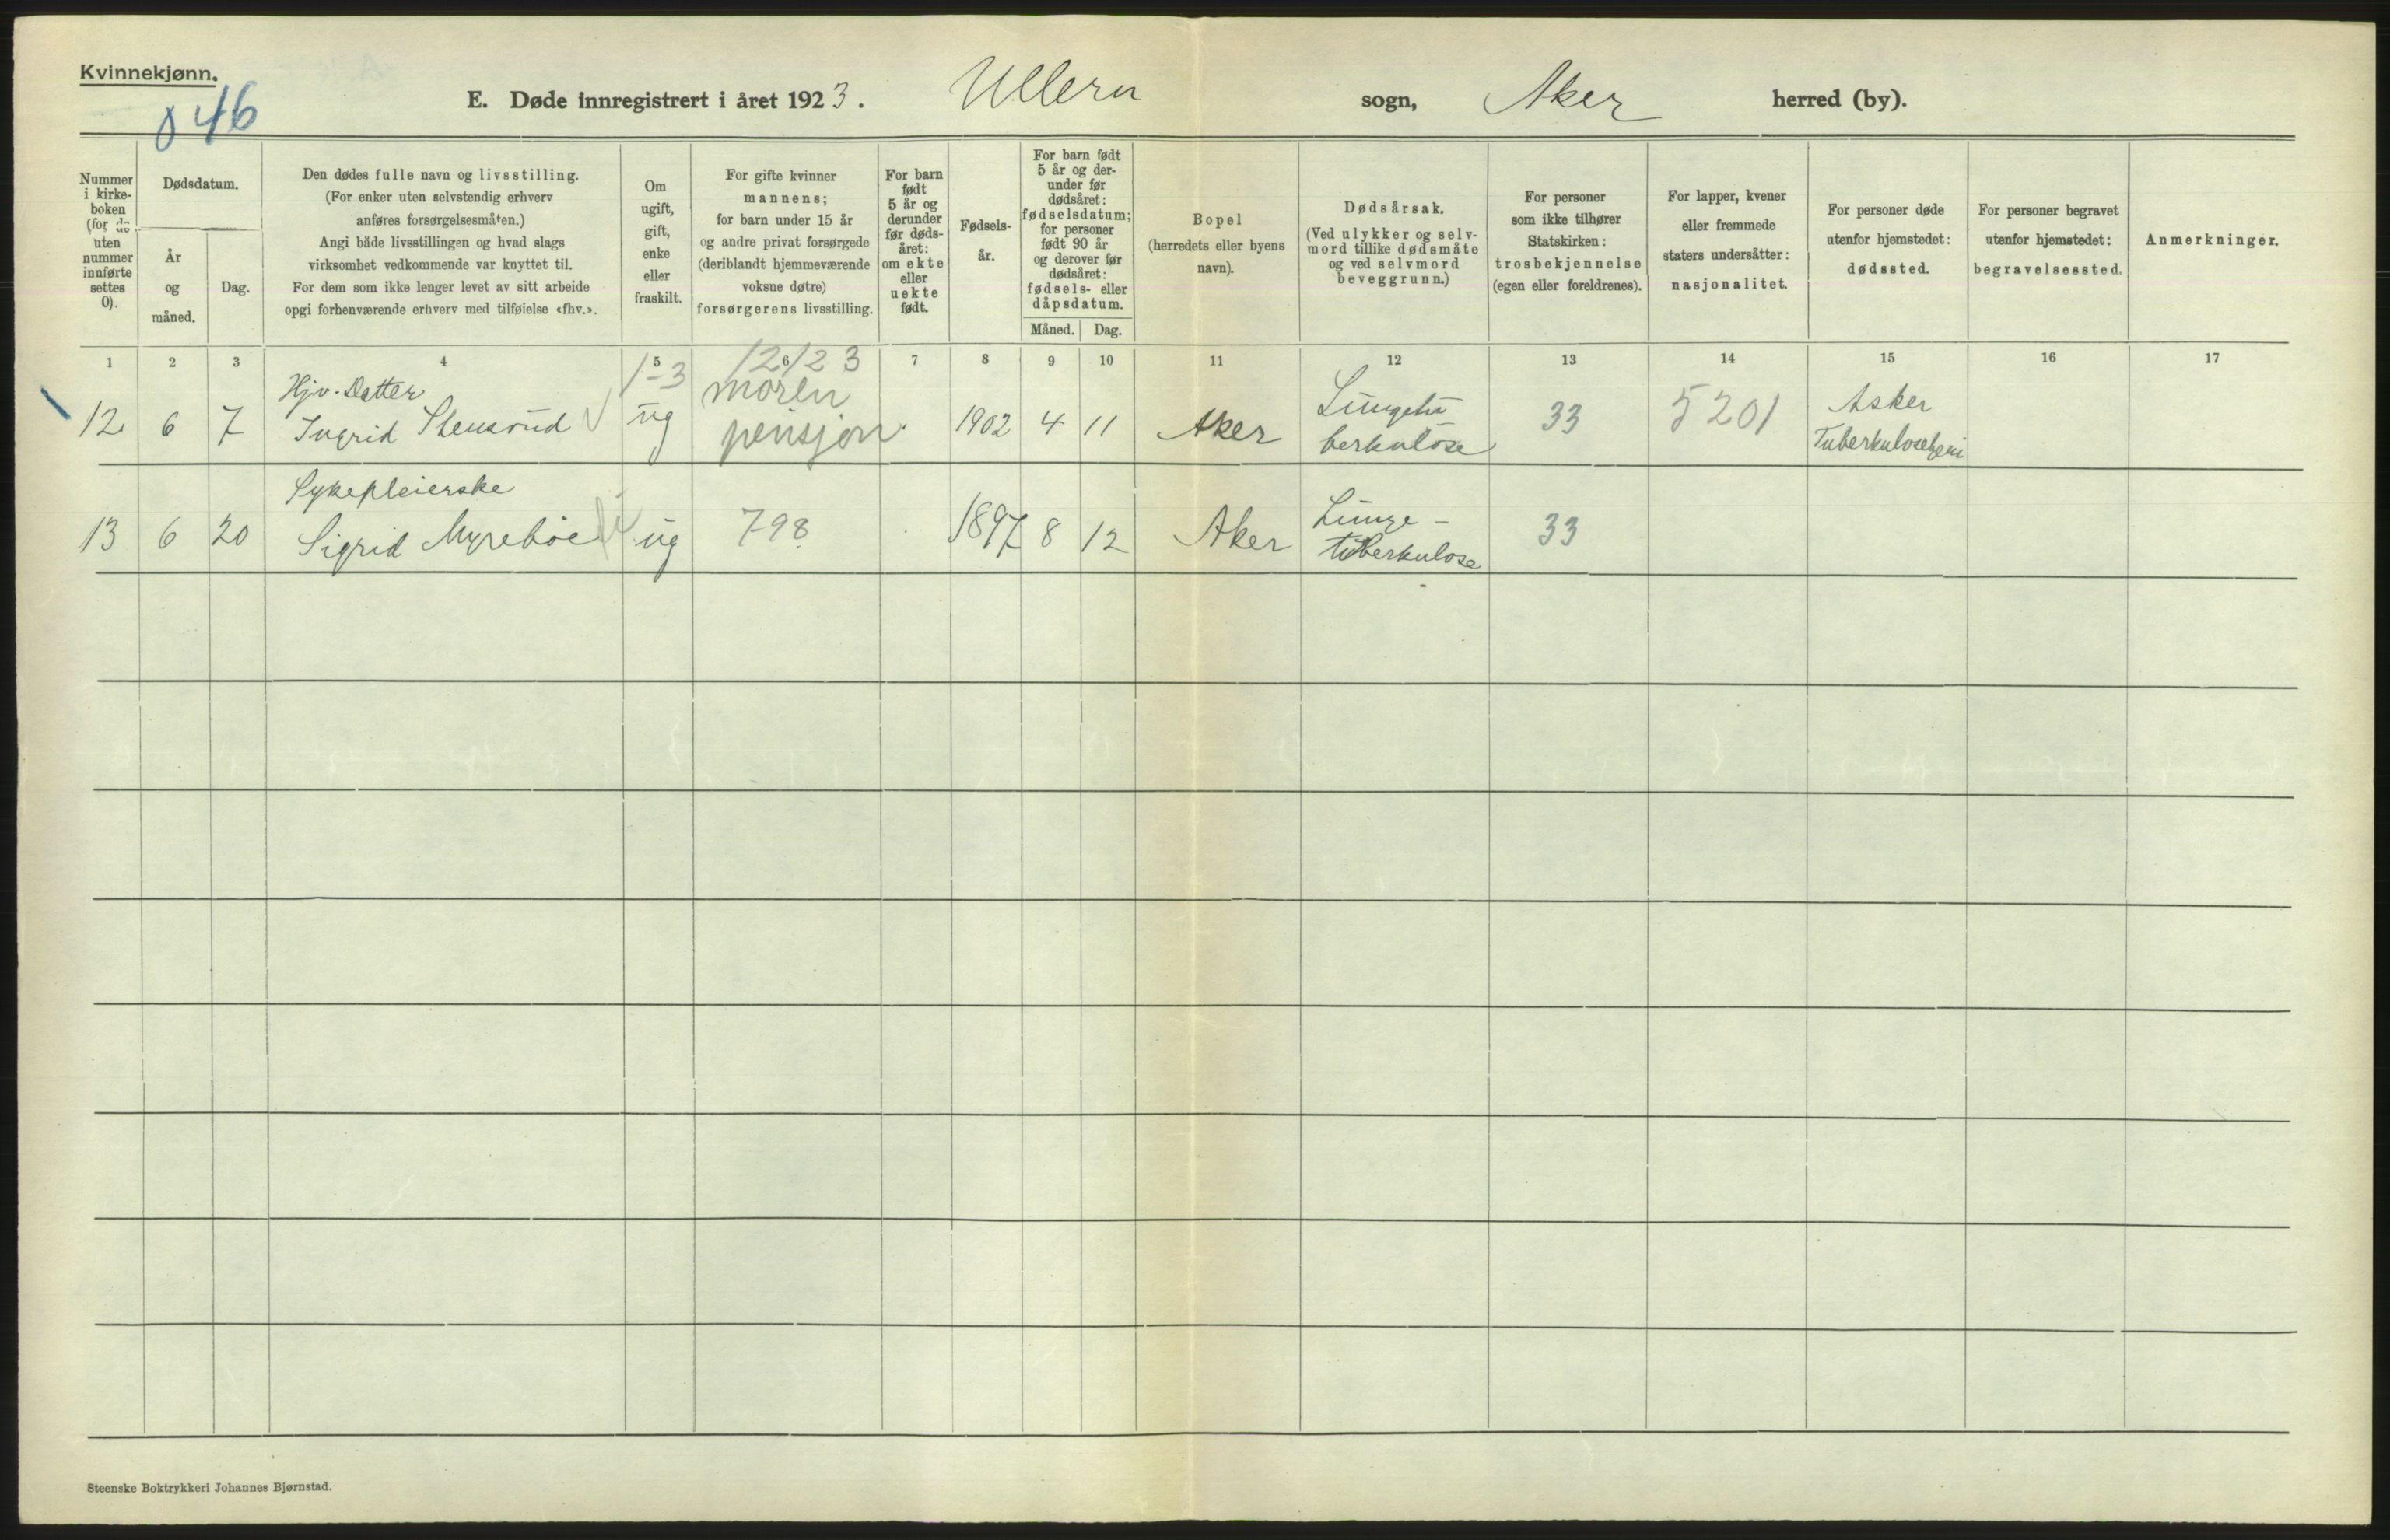 Kvinnekjønn.
46
E. Døde innregistrert i året 1923. Ullern sogn, Aker herred (by).
Nummer
i kirke-
boken
(for de
uten
nummer
innførte
settes
0).
Dødsdatum.
År
og
måned.
Dag.
Den dødes fulle navn og livsstilling.
(For enker uten selvstendig erhverv
anføres forsørgelsesmåten.)
Angi både livsstillingen og hvad slags
virksomhet vedkommende var knyttet til.
For dem som ikke lenger levet av sitt arbeide
opgi forhenværende erhverv med tilføielse «fhv.».
Om
ugift,
gift,
enke
eller
fraskilt.
For gifte kvinner
mannens;
for barn under 15 år
og andre privat forsørgede
(deriblandt hjemmeværende
voksne døtre)
forsørgerens livsstilling.
For barn
født
5 år og
derunder
før døds-
året:
om ekte
eller
uekte
født.
Fødsels-
år.
For barn født
5 år og der-
under før
dødsåret:
fødselsdatum;
for personer
født 90 år
og derover før
dødsåret:
fødsels- eller
dåpsdatum.
Måned. Dag.
Bopel
(herredets eller byens
navn).
Dødsårsak.
(Ved ulykker og selv-
mord tillike dødsmåte
og ved selvmord
beveggrunn.)
For personer
som ikke tilhører
Statskirken:
trosbekjennelse
(egen eller foreldrenes).
For lapper, kvener
eller fremmede
staters undersåtter:
nasjonalitet.
For personer døde
utenfor hjemstedet:
dødssted.
For personer begravet
utenfor hjemstedet:
begravelsessted.
Anmerkninger.
1 2 3 4 5 6 7 8 9 10 11 12 13 14 15 16 17
1-3 12/23
Hjv. Datter moren Lungetu Asker
12 6 7 Ingrid Stensrud ug pensjon 1902 4 11 Aker berkulose 33 5201 Tuberkulosehjem
Sykepleierske Lunge-
13 6 20 Sigrid Myreboe ug 798 1897 8 12 Aker tuberkulose 33
Steenske Boktrykkeri Johannes Bjørnstad.